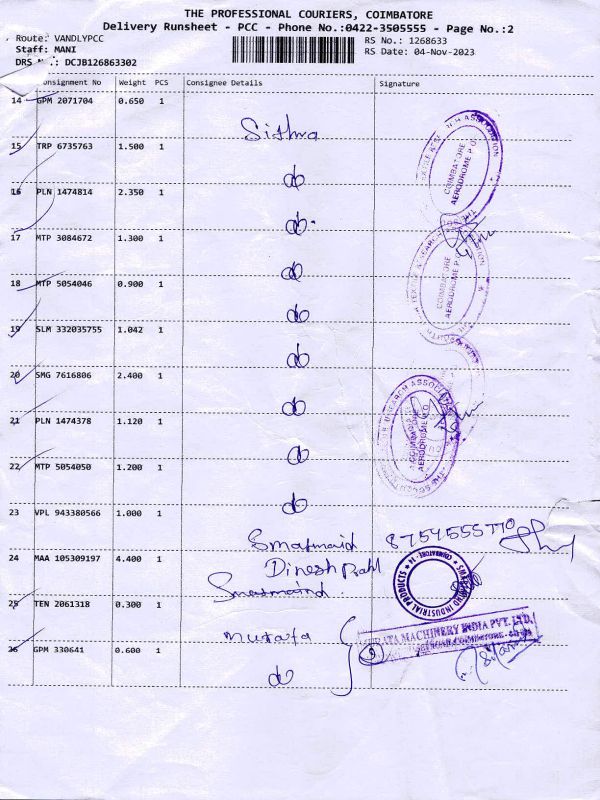 THE PROFESSIONAL COURIERS, COIMBATORE
Delivery Runsheet - PCC - Phone No.:0422-3505555 - Page No.:2
Route: VANDLYPCC
Staff: MANI
DRS No.: DCJB126863302
RS No.: 1268633
RS Date: 04-Nov-2023
Consignment No Weight PCS Consignee Details Signature
14 GPM 2071704 0.650 1
Sithra
15 TRP 6735763 1.500 1
do
16 PLN 1474814 2.350 1
do
17 MTP 3084672 1.300 1
do
18 MTP 5054046 0.900 1
do
19 SLM 332035755 1.042 1
do
20 SMG 7616806 2.400 1
do
21 PLN 1474378 1.120 1
do
22 MTP 5054050 1.200 1
do
23 VPL 943380566 1.000 1
Smarmaid 8754555770
24 MAA 105309197 4.400 1
Dinesh
25 TEN 2061318 0.300 1
Murata
26 GPM 330641 0.600 1
do
COIMBATORE
AERODROME P.O.
COIMBATORE
AERODROME P.O.
COIMBATORE
AERODROME P.O.
INDUSTRIAL PRODUCTS
MURATA MACHINERY INDIA PVT. LTD.